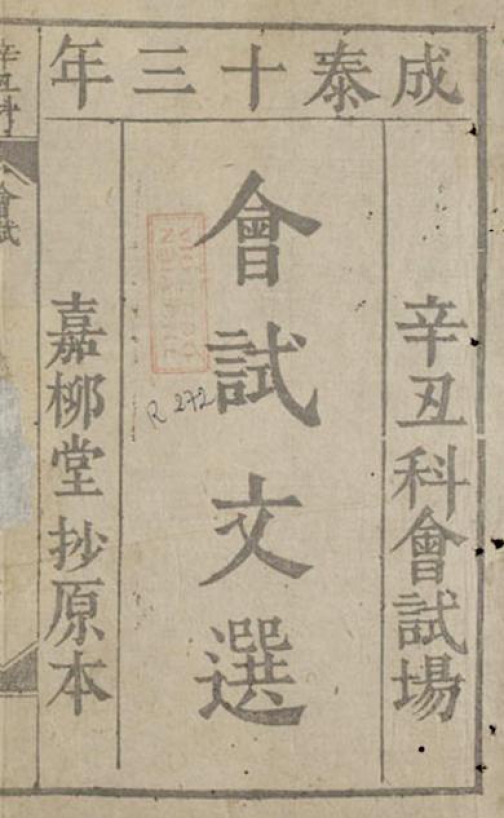 成泰十三年
辛丑科會試場
會試文選
嘉柳堂抄原本
R 272
辛丑科
會試